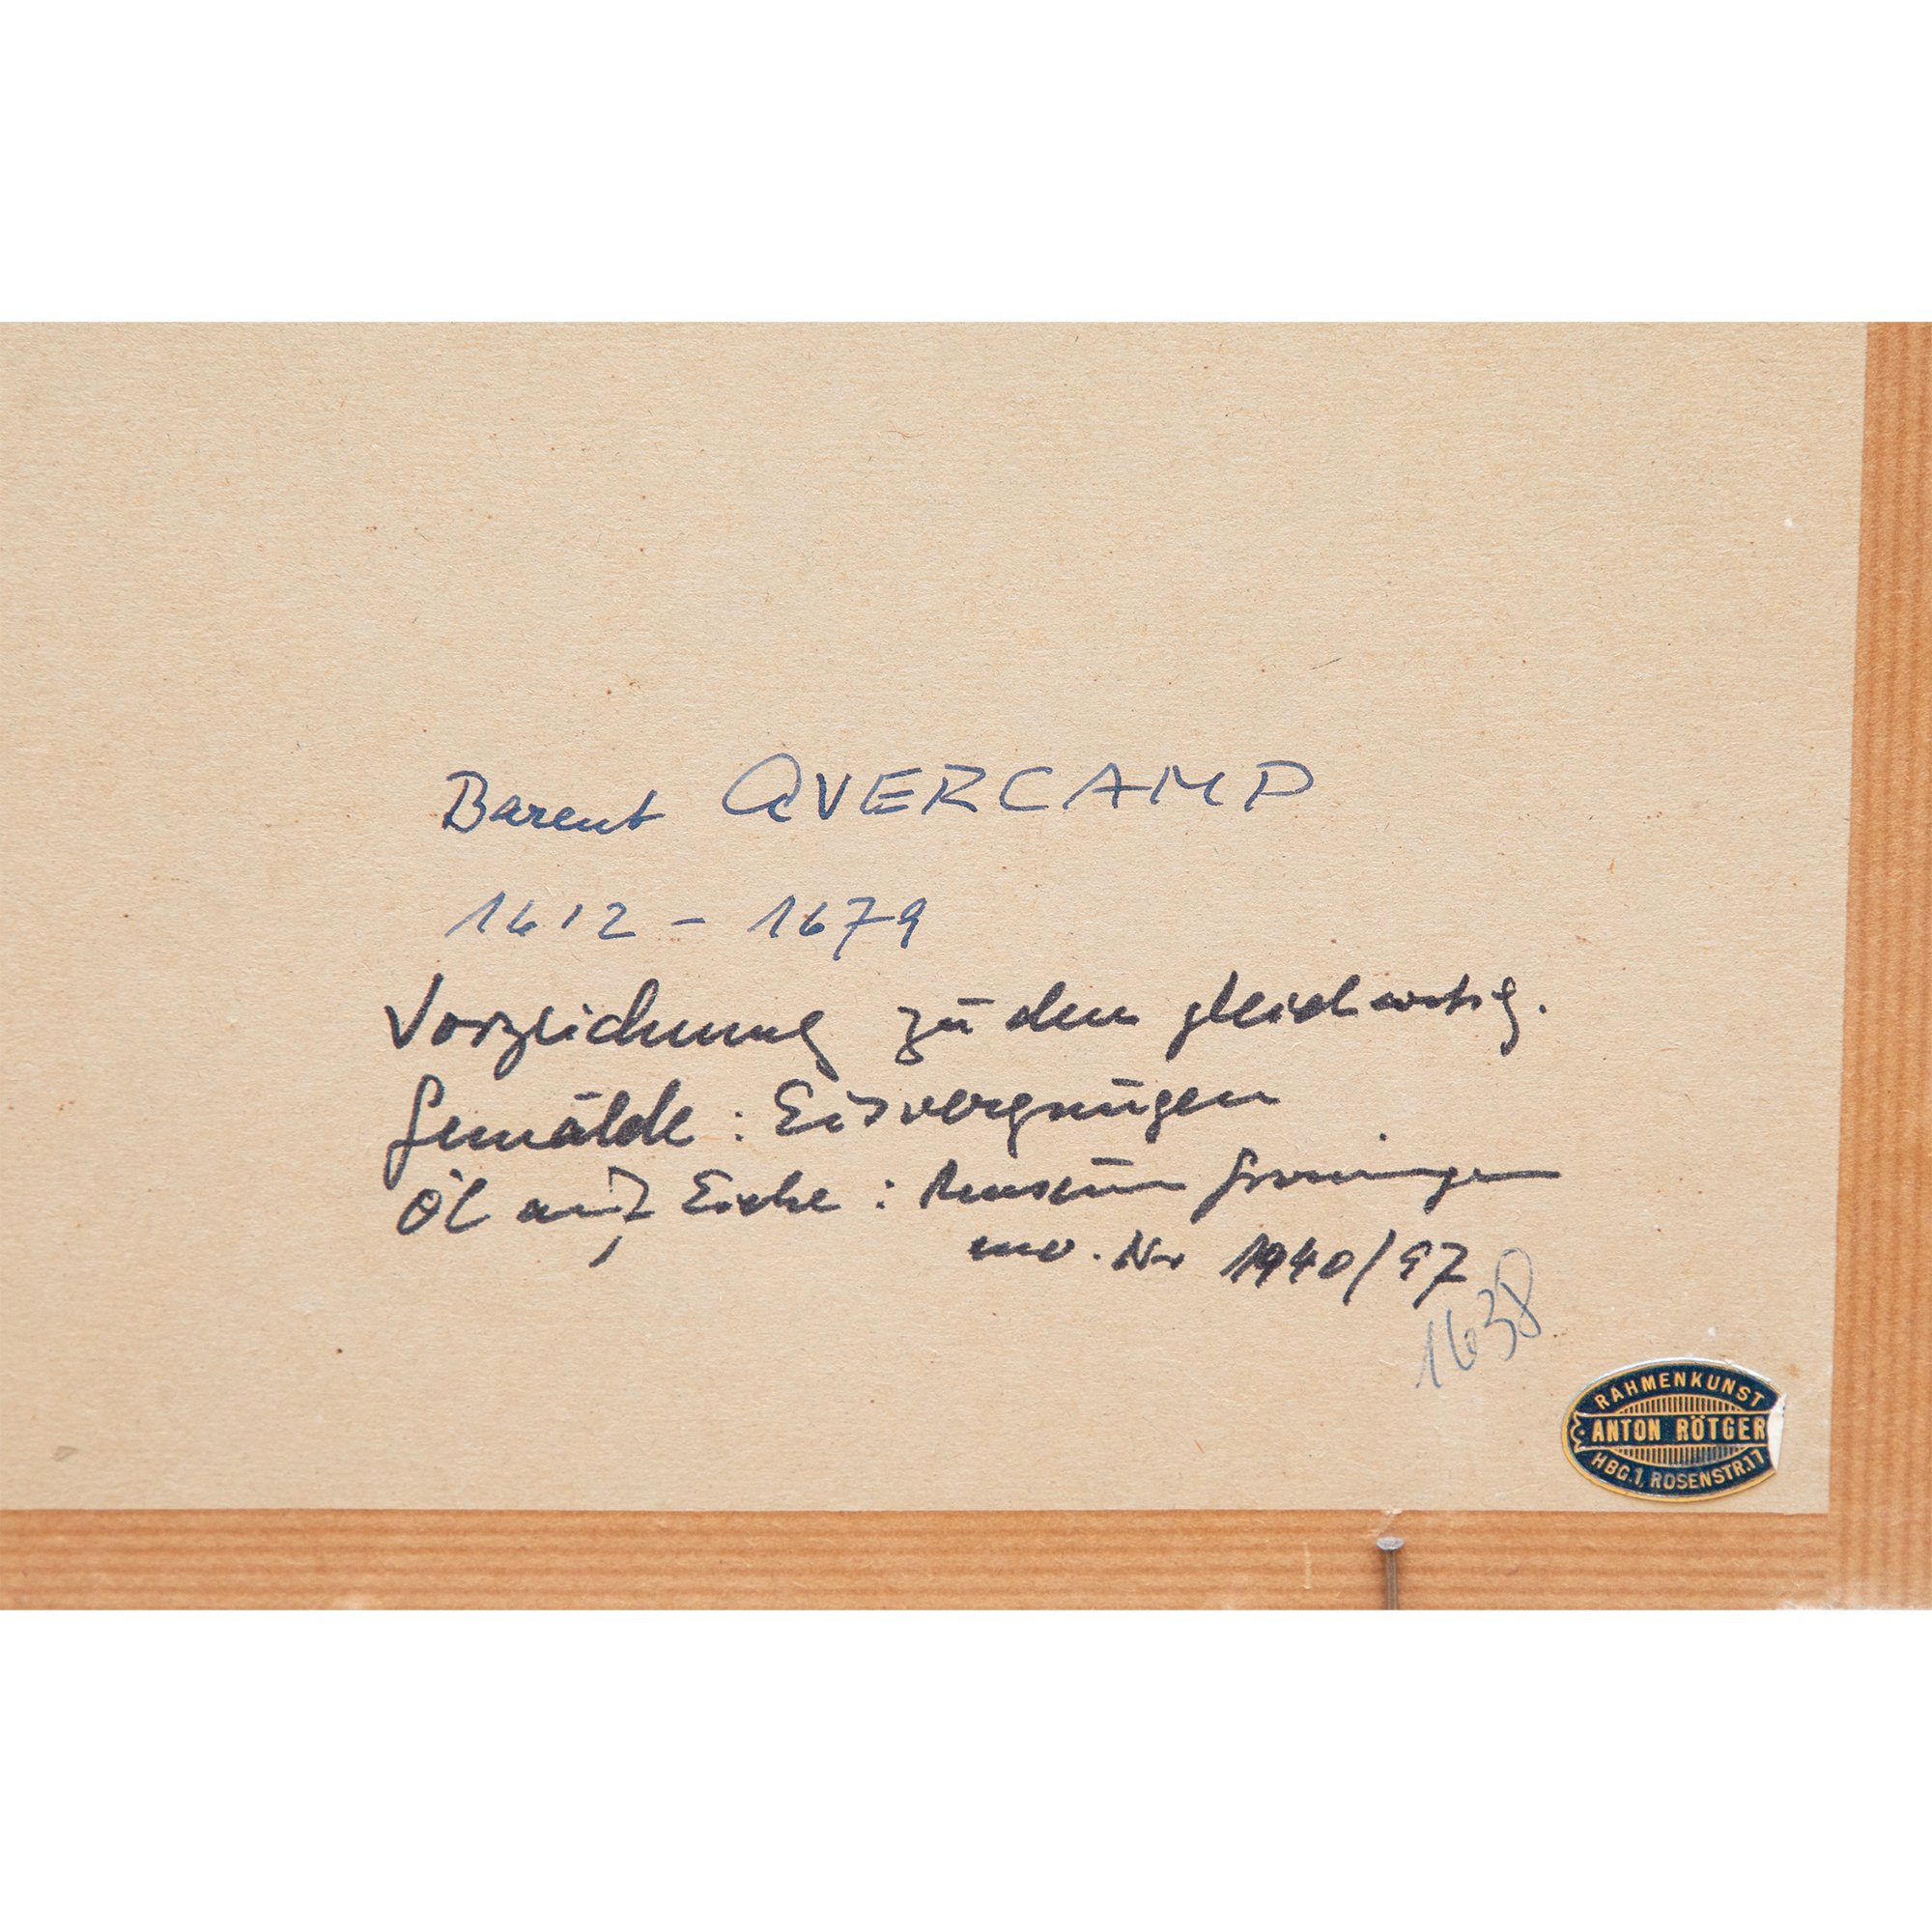 Barent AVERCAMP
1612 - 1679
Vorzeichnung zu dem gleichartig.
Gemälde: Eisvergnügen
Öl auf Eiche: Museum Groningen
inv. Nr 1940/97
1638
RAHMENKUNST
ANTON RÖTGER
HBG.1, ROSENSTR.17